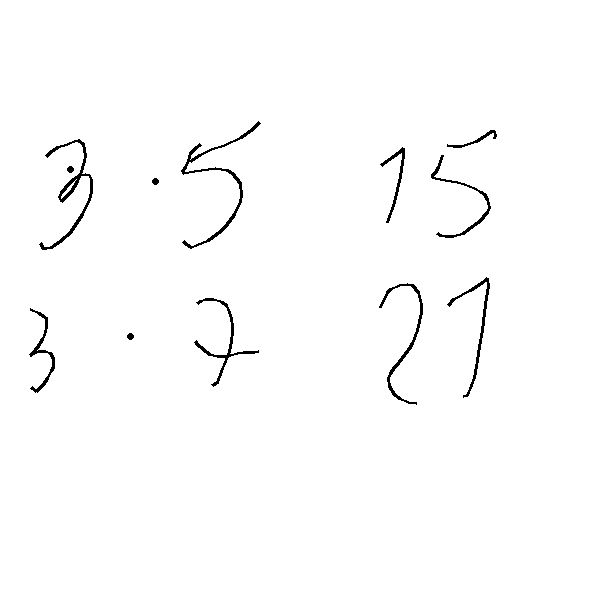 3 · 5 15
3 · 7 21